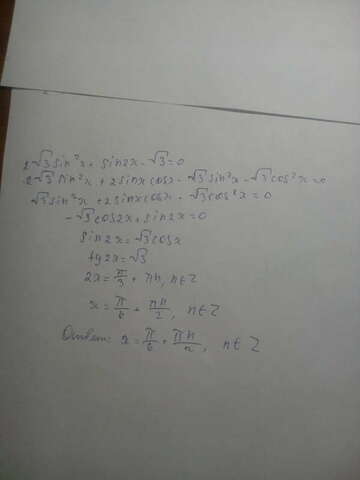 2√3 sin²x + sin2x - √3 = 0
2√3 sin²x + 2sinx cosx - √3 sin²x - √3 cos²x = 0
√3 sin²x + 2sinx cosx - √3 cos²x = 0
-√3 cos2x + sin2x = 0
sin2x = √3 cosx
tg2x = √3
2x = π/3 + πn, n∈Z
x = π/6 + πn/2, n∈Z
Ответ: x = π/6 + πn/2, n∈Z